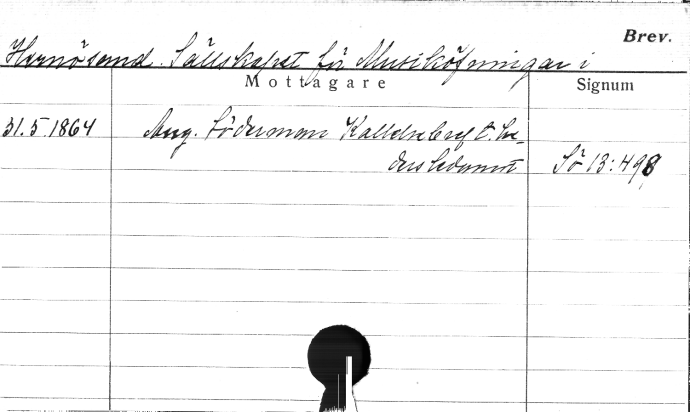 Brev.
Hernösand. Sällskapet för Musiköfningar i
Mottagare Signum
31.5.1864 Aug. Söderman Kallelsebref t. he-
dersledamot Sö 13:498